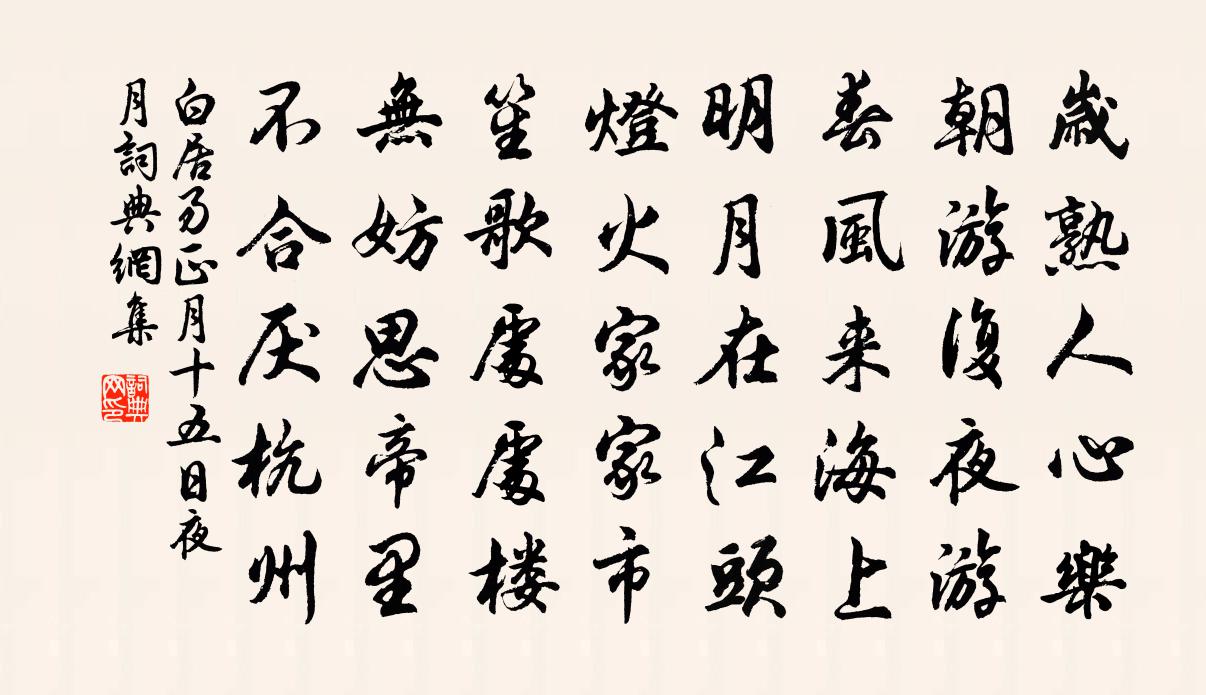 歲熟人心樂
朝游復夜游
春風来海上
明月在江頭
燈火家家市
笙歌處處楼
無妨思帝里
不合厌杭州
白居易正月十五日夜
月詞典網集
詞典网印